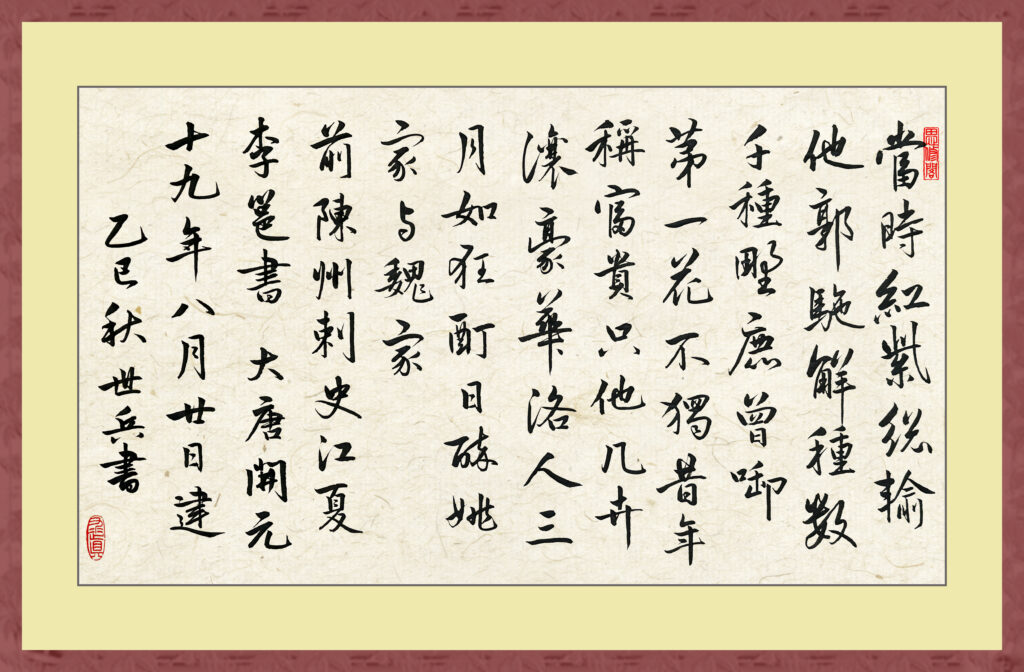 思修閣
當時紅紫総輸
他郭駞解種數
千種野鹿曾啣
第一花不獨昔年
稱富貴只他几卉
讓豪華洛人三
月如狂酊日醉姚
家与魏家
前陳州刺史江夏
李邕書 大唐開元
十九年八月廿日建
乙巳秋世兵書